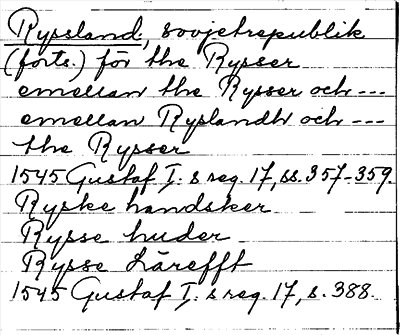 Ryssland, sovjetrepublik
(forts.) för the Rysser
emellan the Rysser och ---
emellan Ryslandh och ---
the Rysser
1545 Gustaf I:s reg. 17, ss. 357-359.
Ryske handsker
Rysse huder
Rysse Lärefft
1545 Gustaf I:s reg. 17, s. 388.